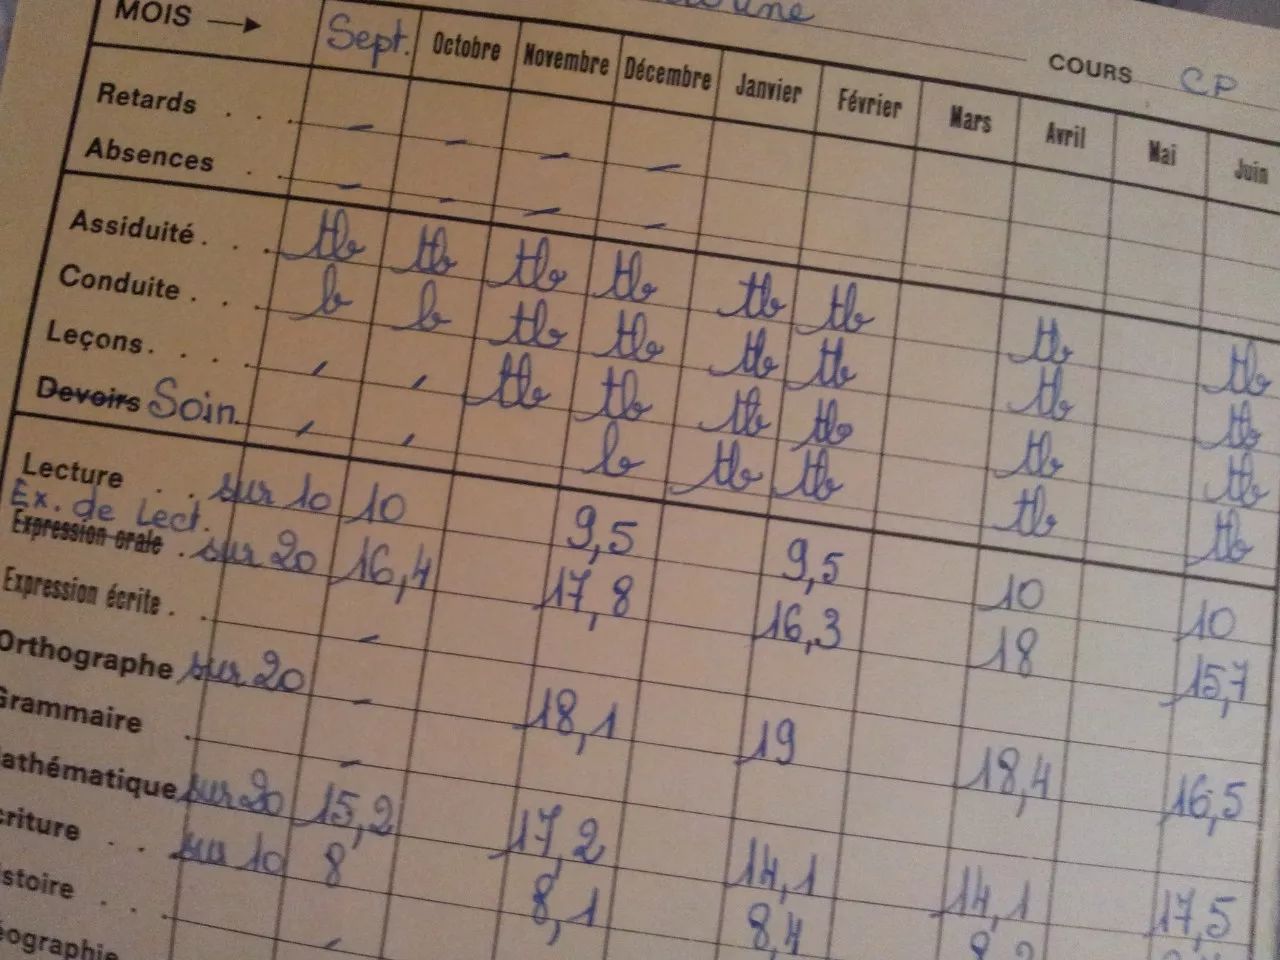 COURS CP
MOIS → Sept. Octobre Novembre Décembre Janvier Février Mars Avril Mai Juin
Retards . . . - - - -
Absences . . - - - -
Assiduité . . . tb tb tb tb tb tb tb tb
Conduite . . . b b tb tb tb tb tb tb
Leçons . . . . , , tb tb tb tb tb tb
Devoirs Soin. , , b tb tb tb tb
Lecture . . sur 10 10 9,5 9,5 10 10
Ex. de Lect.
Expression orale . sur 20 16,4 17,8 16,3 18 15,7
Expression écrite . . -
Orthographe sur 20 - 18,1 19 18,4 16,5
Grammaire . -
athématique sur 20 15,2 17,2 14,1 14,1 17,5
criture . . sur 10 8 8,1 8,4
stoire . . . -
éographie